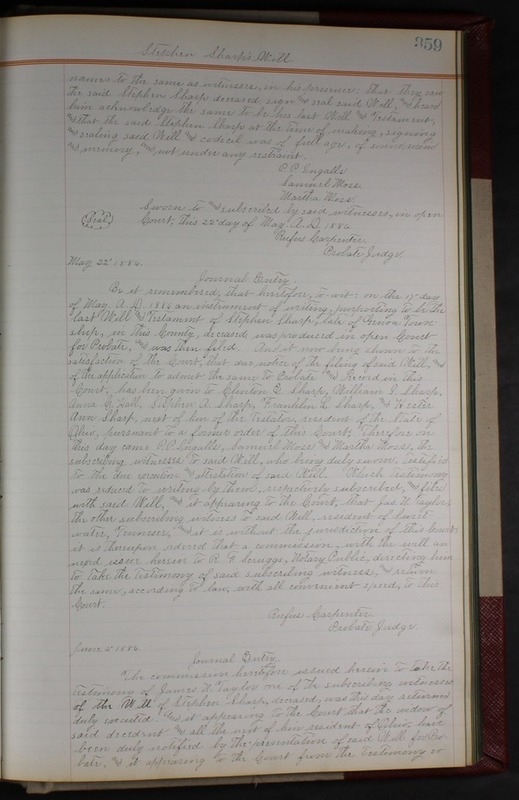 359
Stephen Sharp's Will
names to the same as witnesses, in his presence: that they saw
the said Stephen Sharp deceased, sign and seal said Will, and heard
him acknowledge the same to be his last Will and Testament,
and that the said Stephen Sharp at the time of making, signing
and sealing said Will and codicil was of full age, of sound mind
and memory, and not under any restraint.
P. P. Ingalls
Samuel Moss
Martha Moss
Sworn to and subscribed by said witnesses, in open
(Seal) Court, this 22 day of May A.D. 1886
Rufus Carpenter,
Probate Judge.
May 22 1886.
Journal Entry.
Be it remembered, that heretofore, to wit: on the 17 day
of May A.D. 1886 an instrument of writing, purporting to be the
last Will and Testament of Stephen Sharp, late of Genoa Town
ship, in this County, deceased was produced in open Court
for Probate, and was then filed. And it now being shown to the
satisfaction of the Court, that due notice of the filing of said Will, and
of the application to admit the same to Probate and Record in this
Court, has been given to Clinton Sharp, William Sharp,
Anna Hall, Stephen A. Sharp, Franklin Sharp, and Hester
Ann Sharp, next of kin of the Testator, resident of the State of
Ohio, pursuant to a former order of this Court. Therefore on
this day came P. P. Ingalls, Samuel Moss and Martha Moss, the
subscribing witnesses to said Will, who being duly sworn, testified
to the due execution and attestation of said Will. Which testimony
was reduced to writing by them, respectively subscribed, and filed
with said Will, and it appearing to the Court, that Jas. W. Taylor,
the other subscribing witness to said Will, resident of Sweet
water, Tennessee, and it is without the jurisdiction of this Court
it is thereupon ordered that a commission, with the will an
nexed issue herein to R. F. Scruggs, Notary Public, directing him
to take the testimony of said subscribing witness, and return
the same, according to law, with all convenient speed, to this
Court.
Rufus Carpenter
Probate Judge.
June 2 1886
Journal Entry.
The commission heretofore issued herein to take the
testimony of James W. Taylor one of the subscribing witnesses
of the Will of Stephen Sharp, deceased, was this day returned
duly executed. And it appearing to the Court that the widow of
said decedent and all the next of kin resident of Ohio, have
been duly notified by the presentation of said Will for Pro
bate, and it appearing to the Court from the testimony